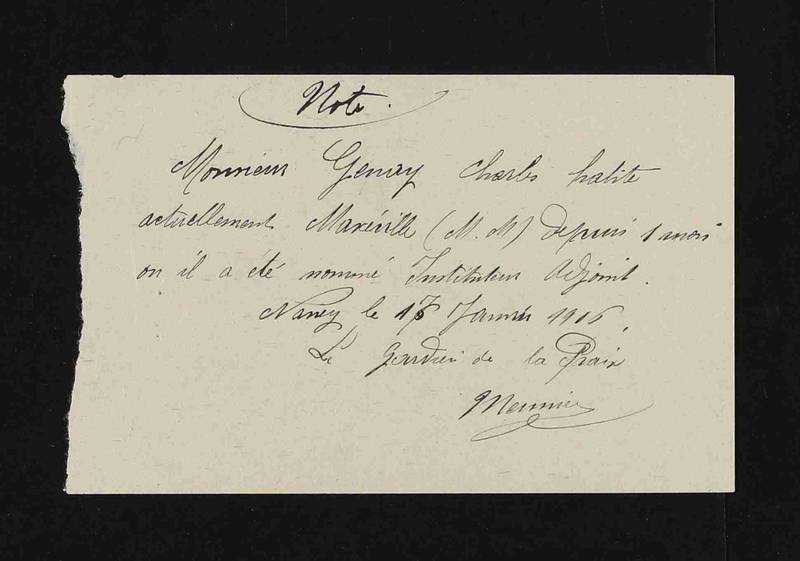 Note.
Monsieur Genay Charles habite
actuellement Maxéville (M. M) depuis 1 mois
ou il a été nommé Instituteur Adjoint.
Nancy, le 17 Janvier 1916,
Le gardien de la Paix
Meunier